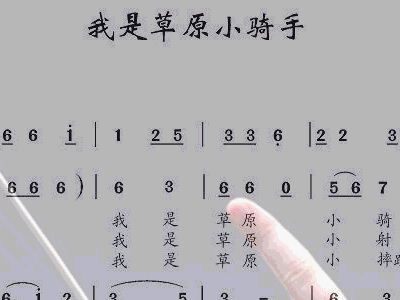 我是草原小骑手
6 6 i | 1 2 5 | 3 3 6 | 2 2 3
6 6 6 ) | 6 3 | 6 6 0 | 5 6 7
我 是 草 原 小 骑
我 是 草 原 小 射
我 是 草 原 小 摔跤
6 i 2 | 3 5 | 3 - | 6 3